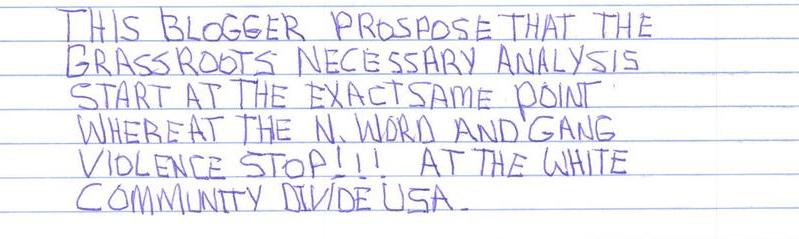 THIS BLOGGER PROSPOSE THAT THE
GRASSROOTS NECESSARY ANALYSIS
START AT THE EXACT SAME POINT
WHEREAT THE N. WORD AND GANG
VIOLENCE STOP!!! AT THE WHITE
COMMUNITY DIVIDE USA.